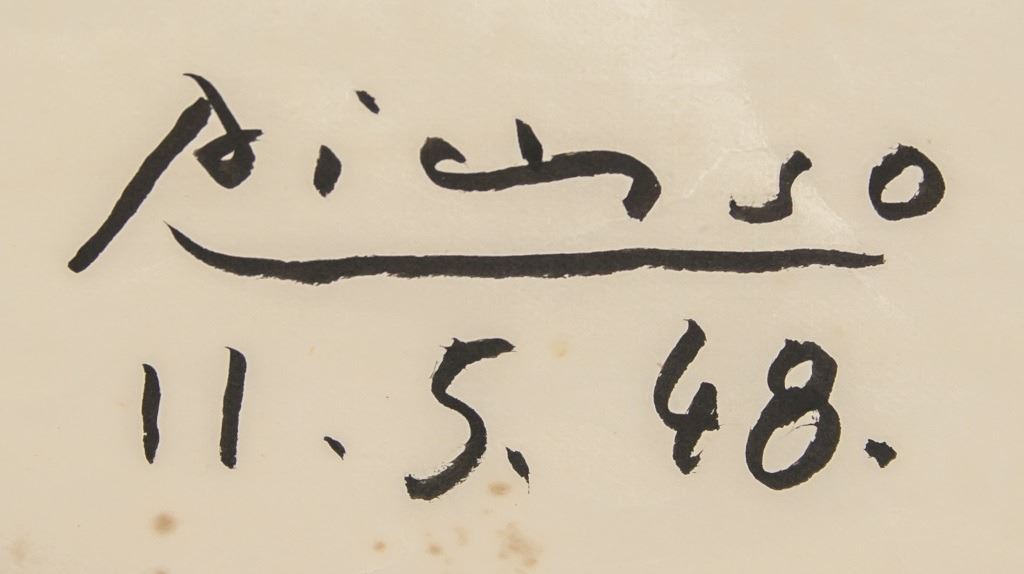 Picasso
11.5.48.